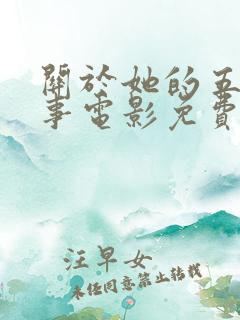 關於她的五
事電影免費
汪早女
未任同意禁止轉載